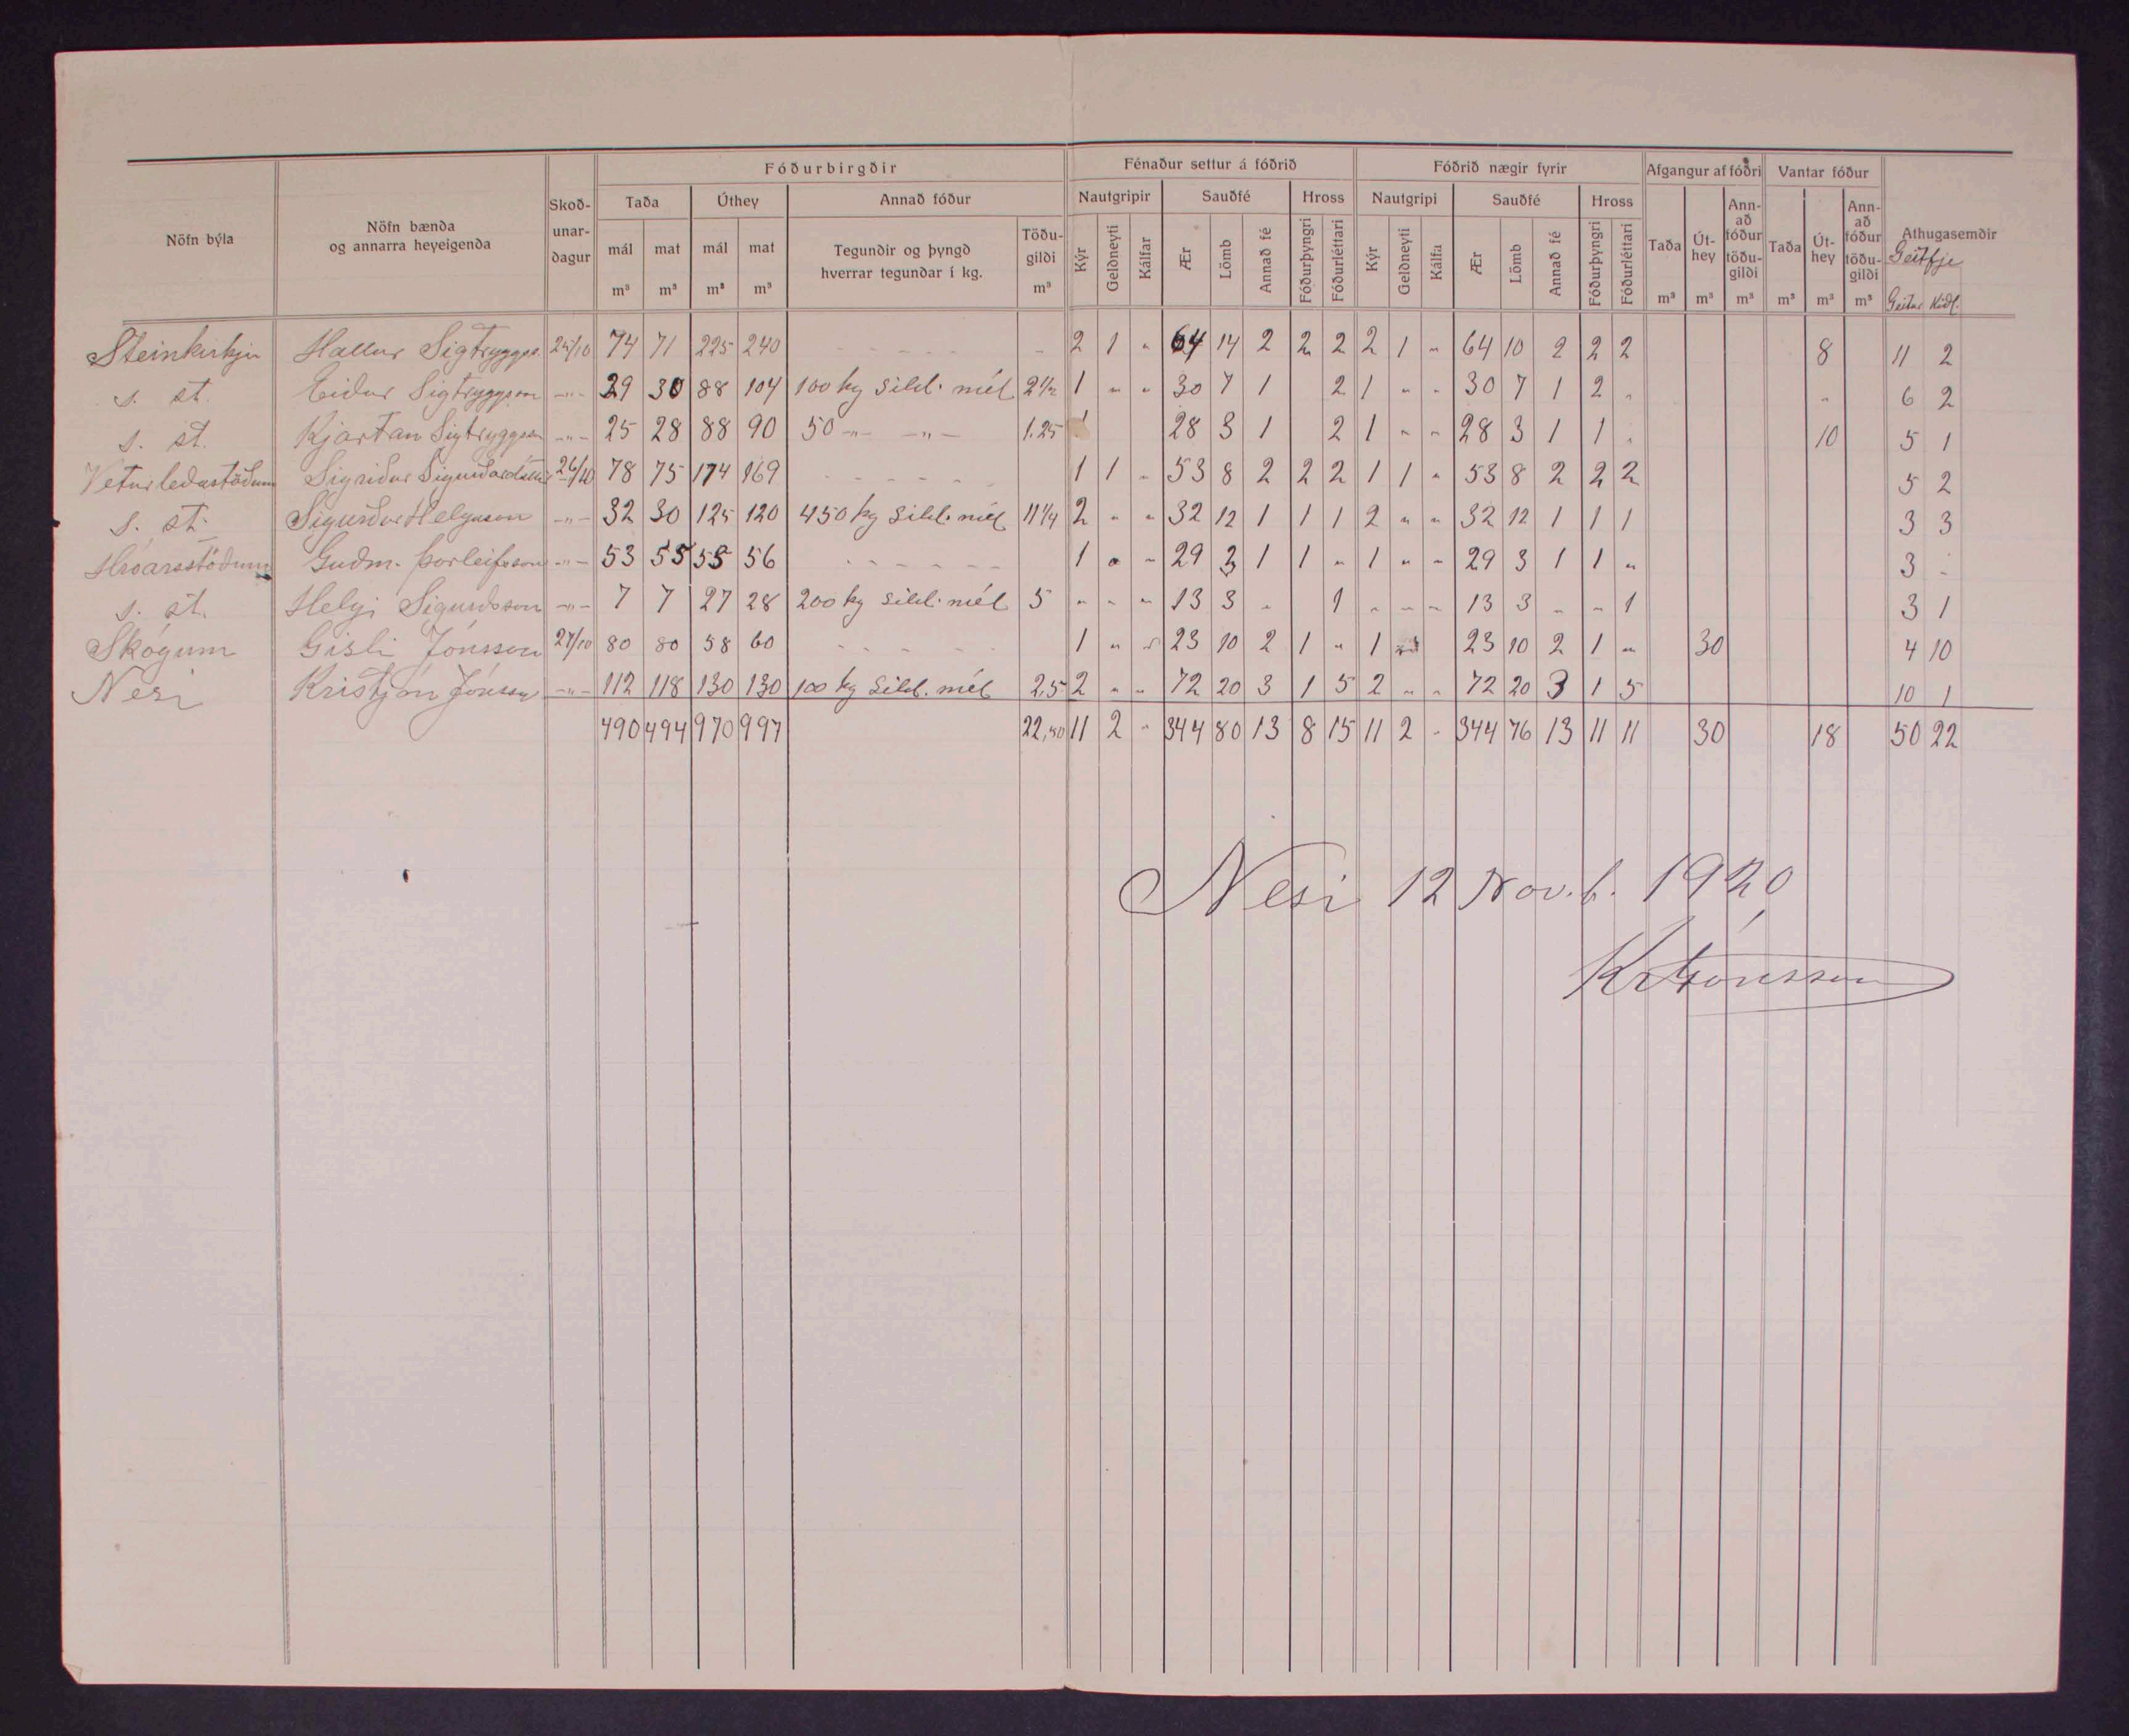 Nöfn býla
Nöfn bænda og annarra heyeigenda
Skoð-unar-dagur
Fóðurbirgðir
Taða
Úthey
Annað fóður
mál m³
mat m³
mál m³
mat m³
Tegundir og þyngd hverrar tegundar í kg.
Töðu-gildi m³
Fénaður settur á fóðrið
Nautgripir
Sauðfé
Hross
Kýr
Geldneyti
Kálfar
Ær
Lömb
Annað fé
Fóðurþyngri
Fóðurléttari
Fóðrið nægir fyrir
Nautgripi
Sauðfé
Hross
Kýr
Geldneyti
Kálfa
Ær
Lömb
Annað fé
Fóðurþyngri
Fóðurléttari
Afgangur af fóðri
Taða m³
Út-hey m³
Ann-að fóður töðu-gildi m³
Vantar fóður
Taða m³
Út-hey m³
Ann-að fóður töðu-gildi m³
Athugasemdir
Geitfje
Geitur Kiðl.
Steinkirkju Hallur Sigtryggss. 25/10 74 71 225 240 - - - - - - 2 1 " 64 14 2 2 2 2 1 " 64 10 2 2 2 8 11 2
s. st. Eiður Sigtryggson -"- 29 30 88 104 100 kg síld. mél 2½ 1 " " 30 7 1 2 1 " " 30 7 1 2 " " 6 2
s. st. Kjartan Sigtryggsson -"- 25 28 88 90 50 -"- -"- 1.25 1 28 3 1 2 1 " " 28 3 1 1 " 10 5 1
Veturleðastöðum Sigríður Sigurðardóttir 26/10 78 75 174 169 - - - - - 1 1 " 53 8 2 2 2 1 1 " 53 8 2 2 2 5 2
s. st. Sigurður Helgason -"- 32 30 125 120 450 kg síld. mél 11¼ 2 " " 32 12 1 1 1 2 " " 32 12 1 1 1 3 3
Hróarsstöðum Guðm. Þorleifsson -"- 53 55 55 56 - - - - - - 1 " " 29 3 1 1 " 1 " " 29 3 1 1 " 3 -
s. st. Helgi Sigurðsson -"- 7 7 27 28 200 kg síld. mél 5 " " " 13 3 " 1 " " " 13 3 " " 1 3 1
Skógum Gísli Jónsson 27/10 80 80 58 60 - - - - - 1 " " 23 10 2 1 " 1 " 23 10 2 1 " 30 4 10
Nesi Kristján Jónsson -"- 112 118 130 130 100 kg síld. mél 2,5 2 " " 72 20 3 1 5 2 " " 72 20 3 1 5 10 1
490 494 970 997 22,50 11 2 " 344 80 13 8 15 11 2 " 344 76 13 11 11 30 18 50 22
Nesi 12 Nov.b. 1920
Kr Jónsson